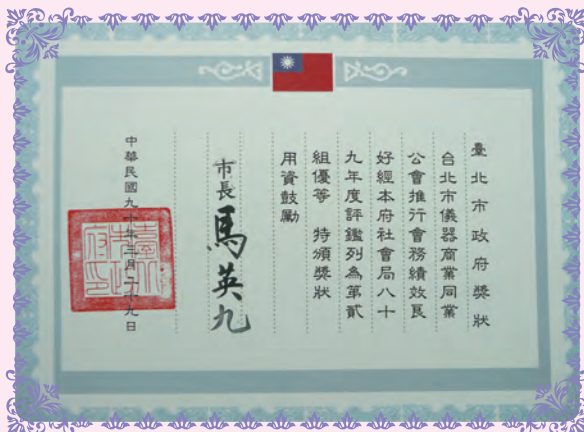 臺北市政府獎狀
台北市儀器商業同業
公會推行會務績效良
好經本府社會局八十
九年度評鑑列為第貳
組優等 特頒獎狀
用資鼓勵
市長 馬英九
中華民國九十年三月二十九日
臺北市政府印